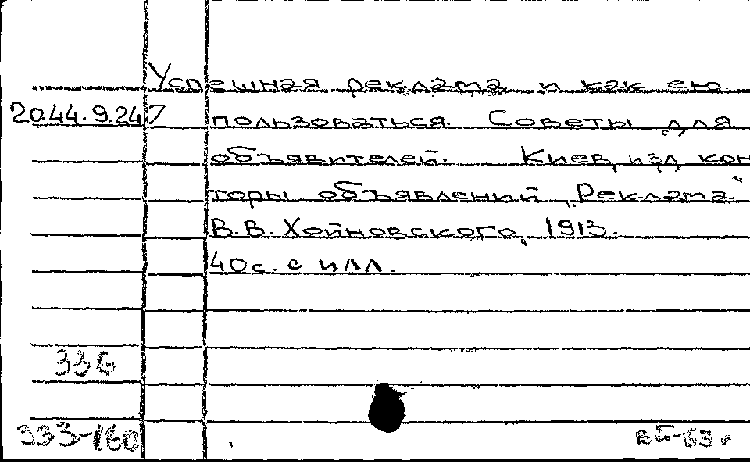 Успешная реклама и как ею
20.44.9.247 пользоваться. Советы для
объявителей. Киев, изд. кон
торы объявлений „Реклама“
В.В. Хойновского, 1913.
40с. с илл.
336
333-160